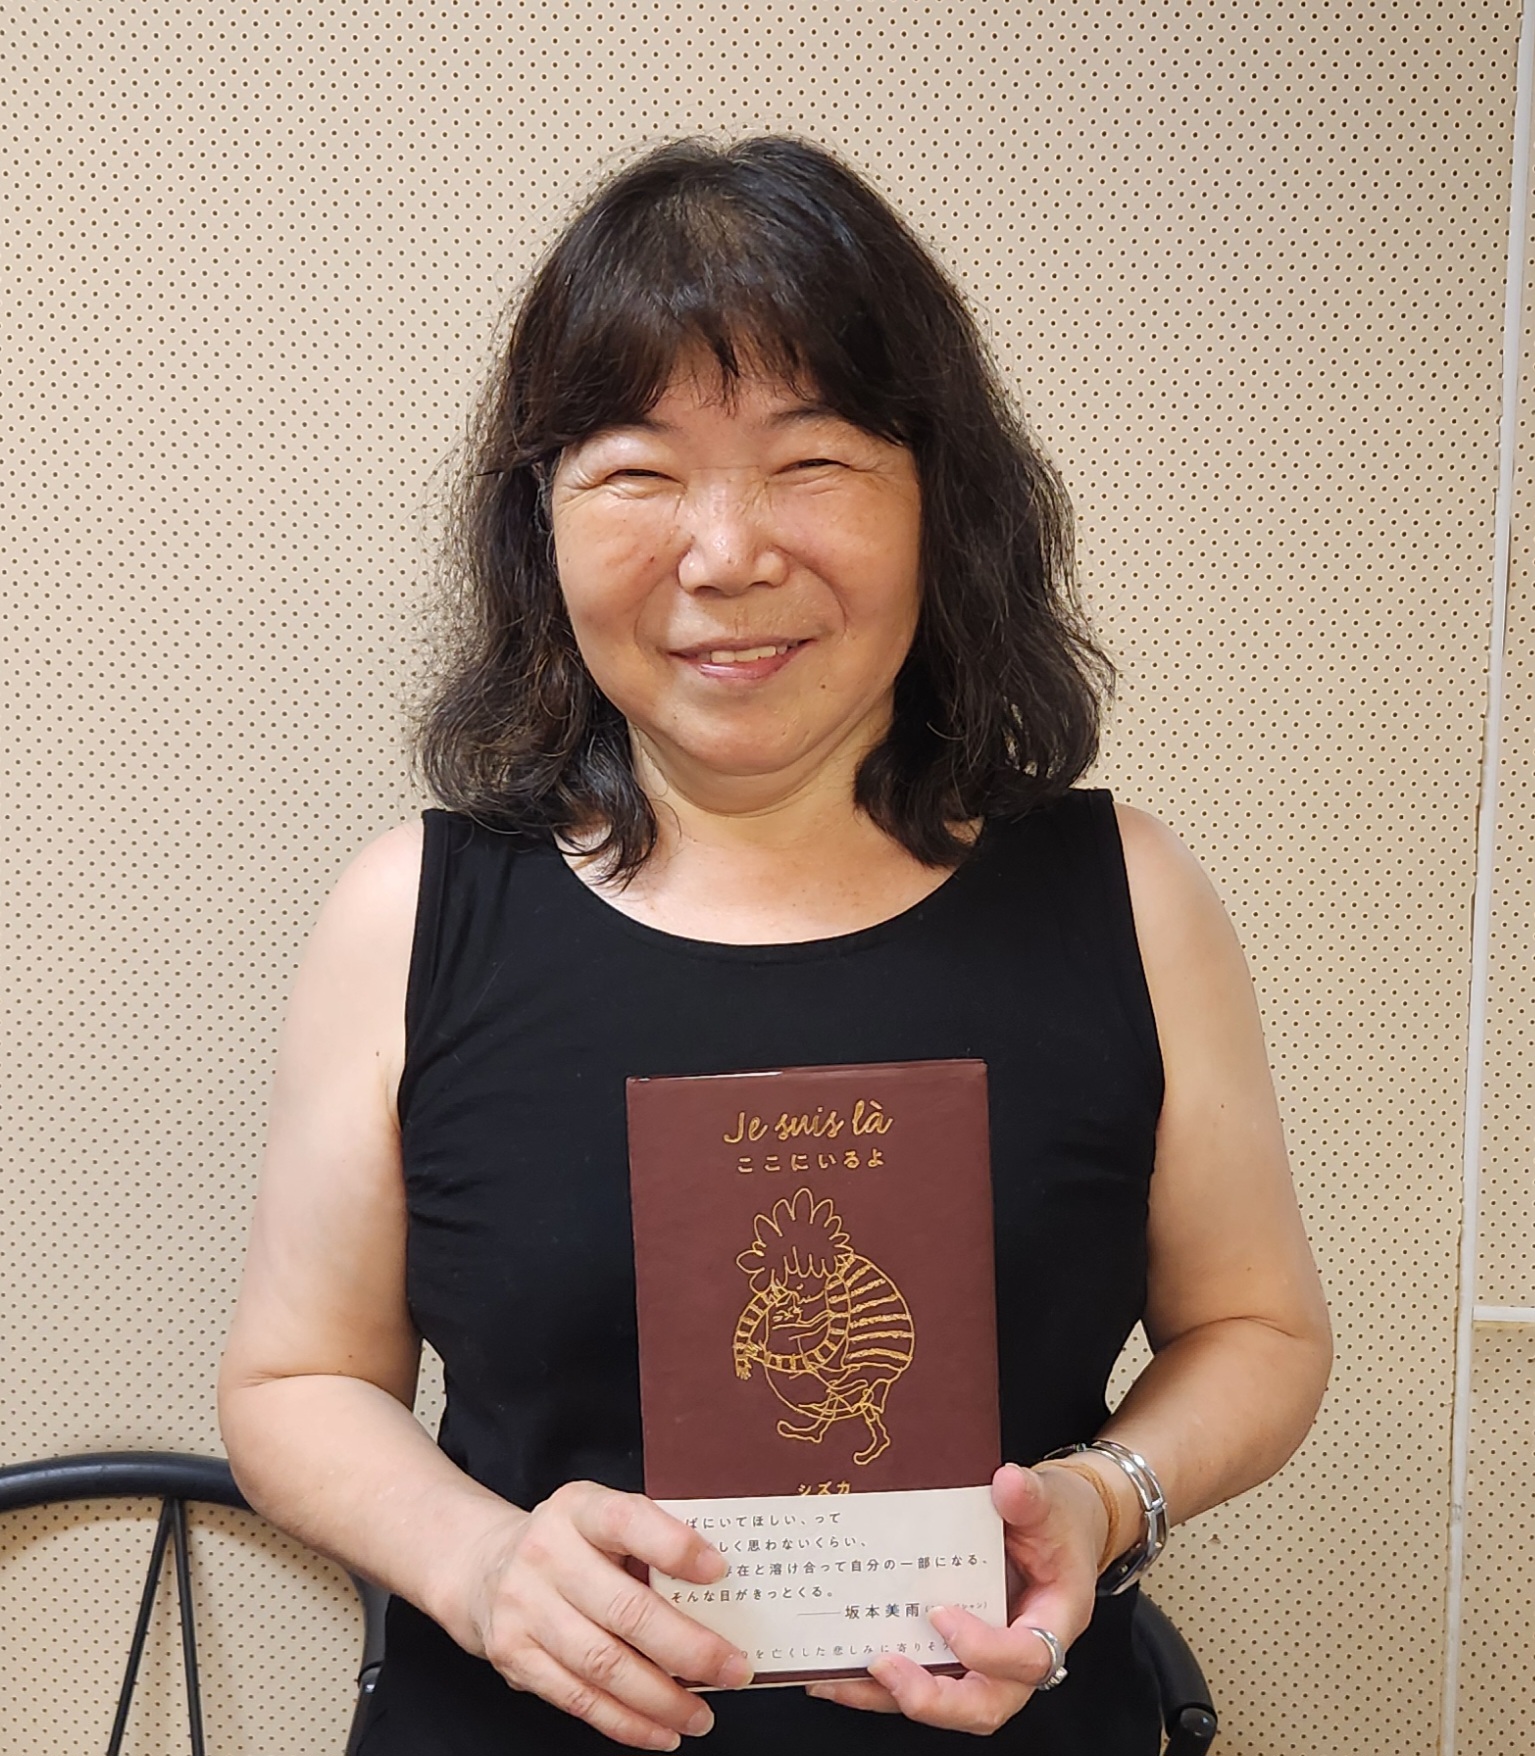 Je suis là
ここにいるよ
シズカ
ばにいてほしい、って
しく思わないくらい、
在と溶け合って自分の一部になる、
そんな日がきっとくる。
――坂本美雨
を亡くした悲しみに寄りそう